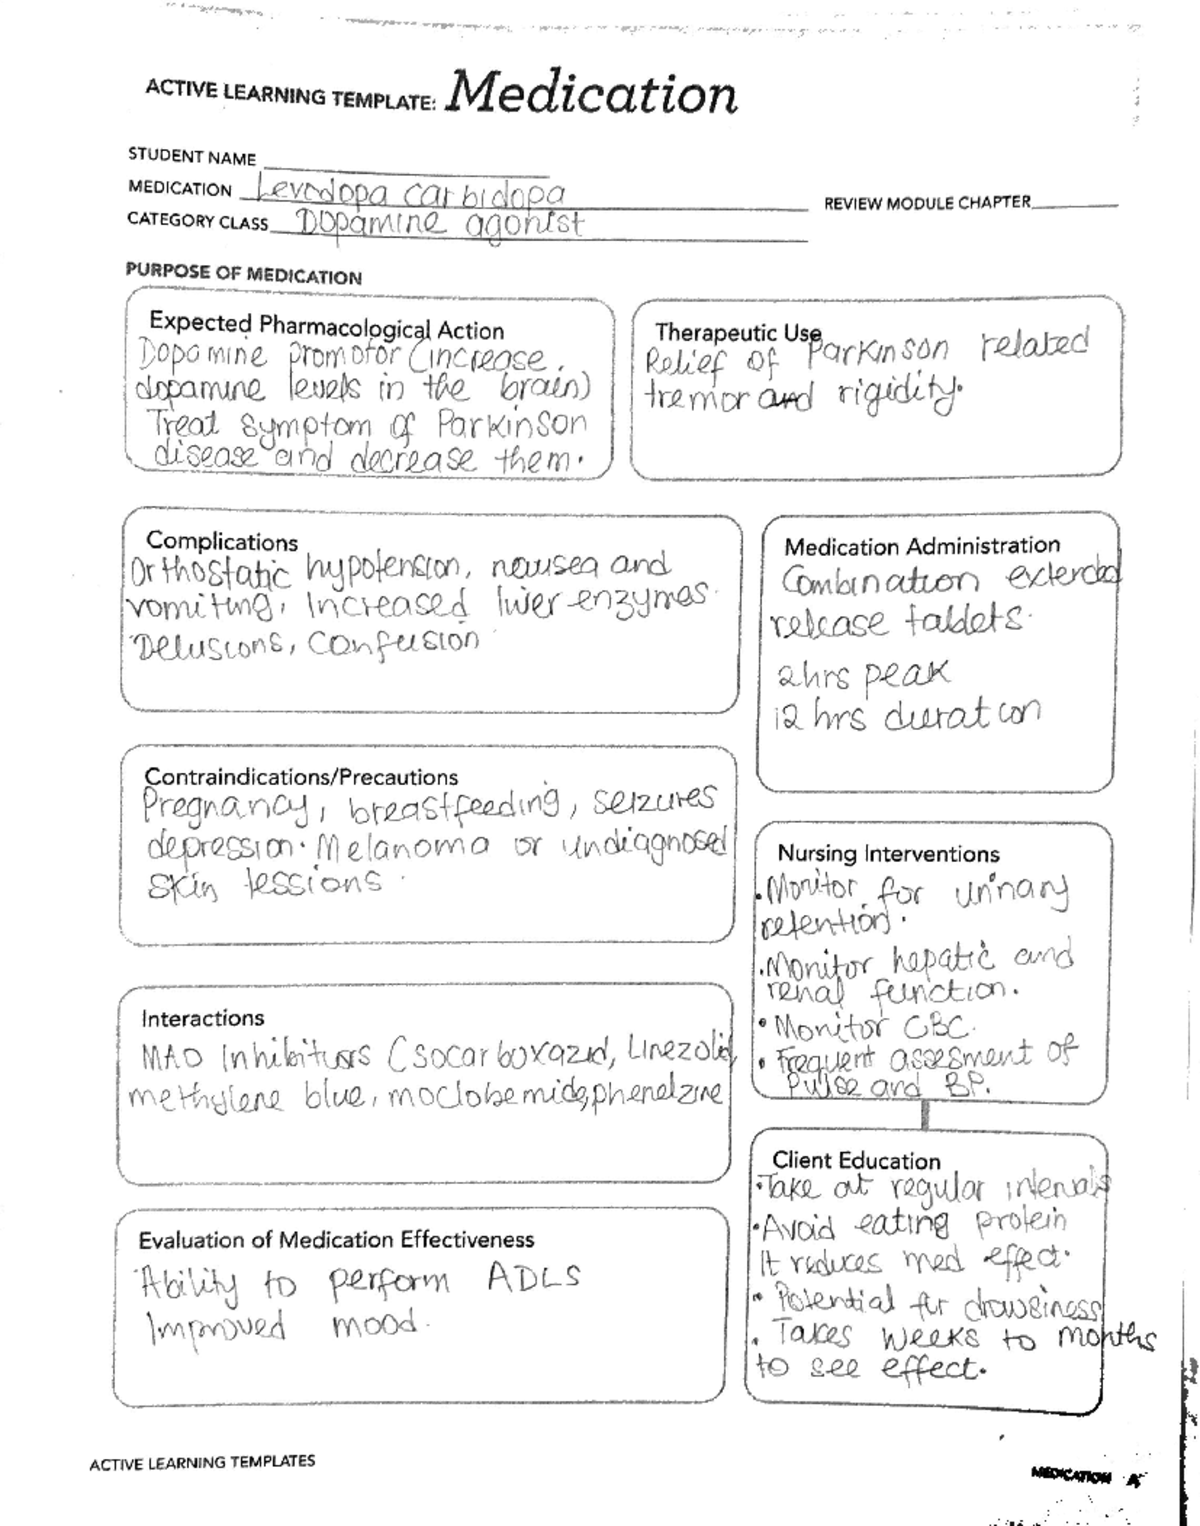 ACTIVE LEARNING TEMPLATE: Medication
STUDENT NAME
MEDICATION Levodopa carbidopa
REVIEW MODULE CHAPTER
CATEGORY CLASS Dopamine agonist
PURPOSE OF MEDICATION
Expected Pharmacological Action
Dopamine promotor (increase
dopamine levels in the brain)
Treat symptom of Parkinson
disease and decrease them.
Therapeutic Use
Relief of Parkinson related
tremor and rigidity.
Complications
Orthostatic hypotension, nausea and
vomiting, Increased liver enzymes.
Delusions, Confusion
Medication Administration
Combination extended
release tablets.
2hrs peak
12 hrs duration
Contraindications/Precautions
Pregnancy, breastfeeding, seizures
depression. Melanoma or undiagnosed
skin lessions.
Nursing Interventions
• Monitor for urinary
retention.
• Monitor hepatic and
renal function.
• Monitor CBC.
• Frequent assesment of
Pulse and BP.
Interactions
MAO Inhibitors (socarboxazid, Linezolid,
methylene blue, moclobemide, phenelzine
Client Education
• Take at regular intervals
• Avoid eating protein
It reduces med effect.
• Potential for drowsiness
• Takes weeks to months
to see effect.
Evaluation of Medication Effectiveness
Ability to perform ADLS
Improved mood.
ACTIVE LEARNING TEMPLATES
MEDICATION